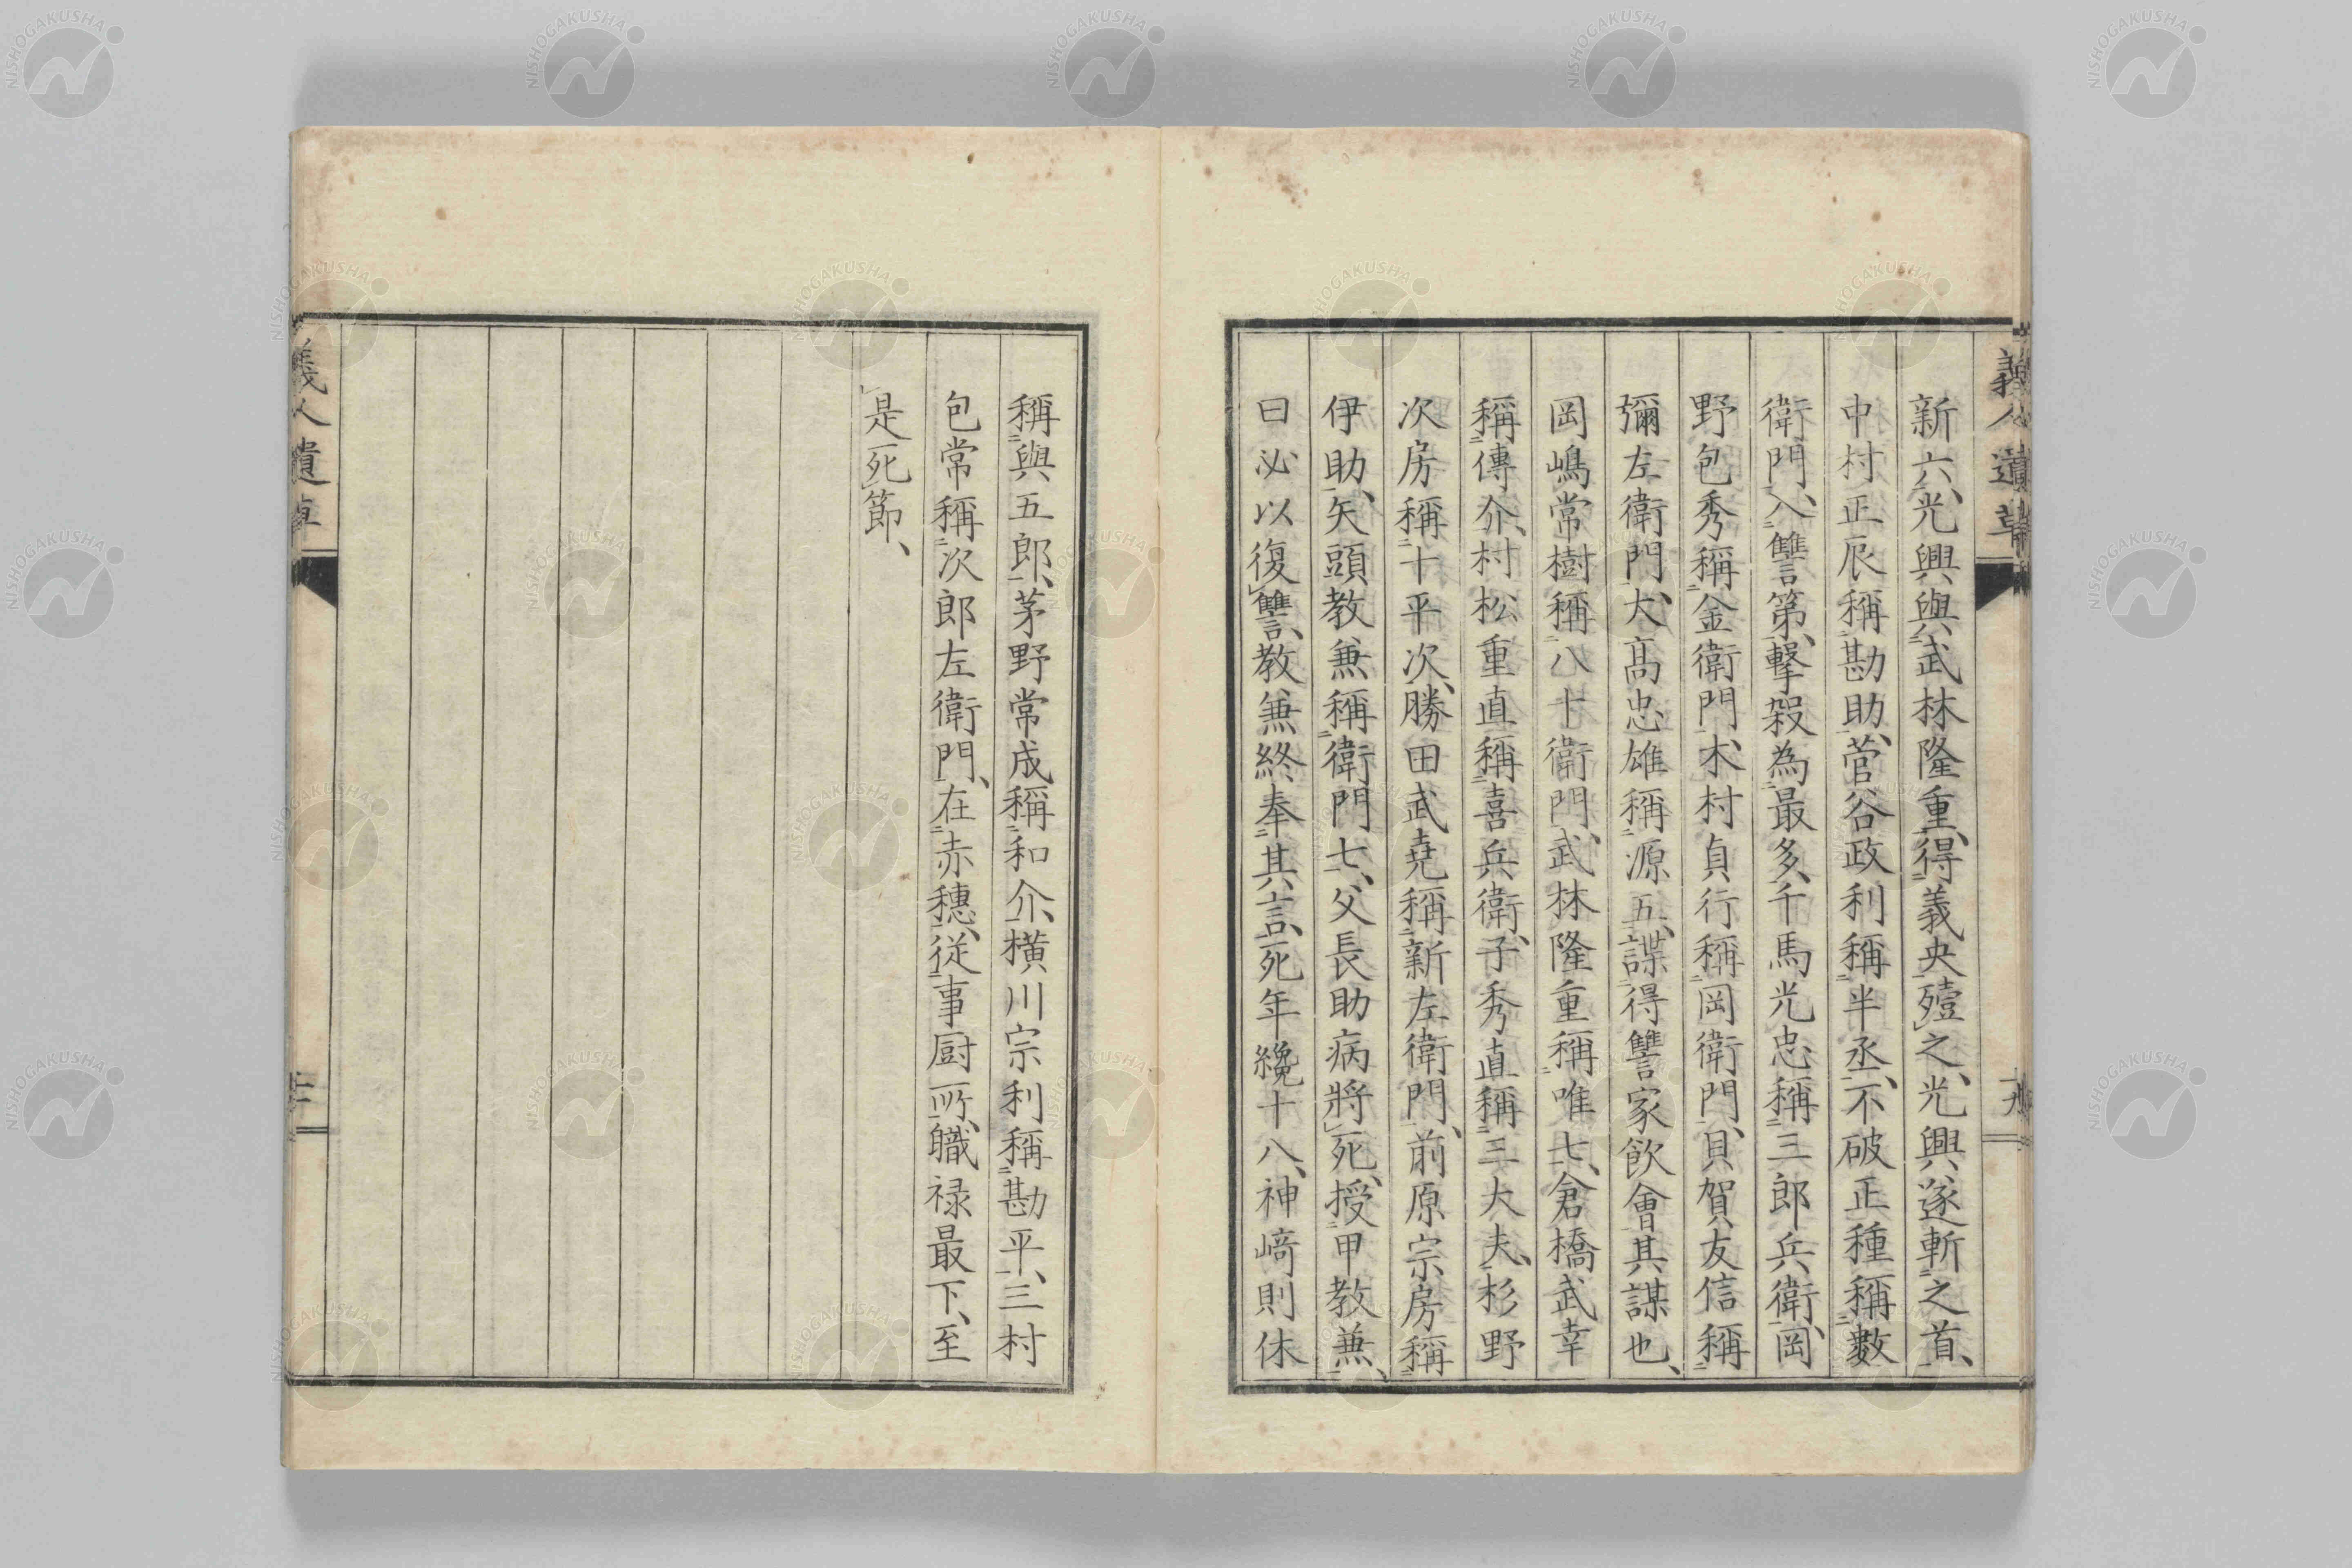 義人遺草
新六、光興與武林隆重、得義央殪之、光興遂斬之首、
中村正辰稱勘助、菅谷政利稱半丞、不破正種稱數
衛門、入讐第、擊殺為最多、千馬光忠稱三郎兵衛、岡
野包秀稱金衛門、木村貞行稱岡衛門、貝賀友信稱
彌左衛門、大高忠雄稱源五、諜得讐家飲會其謀也、
岡嶋常樹稱八十衛門、武林隆重稱唯七、倉橋武幸
稱傳介、村松重直稱喜兵衛、子秀直稱三大夫、杉野
次房稱十平次、勝田武堯稱新左衛門、前原宗房稱
伊助、矢頭教兼稱衛門七、父長助病將死、授甲教兼、
曰必以復讐、教兼終奉其言、死年纔十八、神﨑則休
稱與五郎、茅野常成稱和介、横川宗利稱勘平、三村
包常稱次郎左衛門、在赤穗、従事厨所、職禄最下、至
是死節、
義人遺草
NISHOGAKUSHA